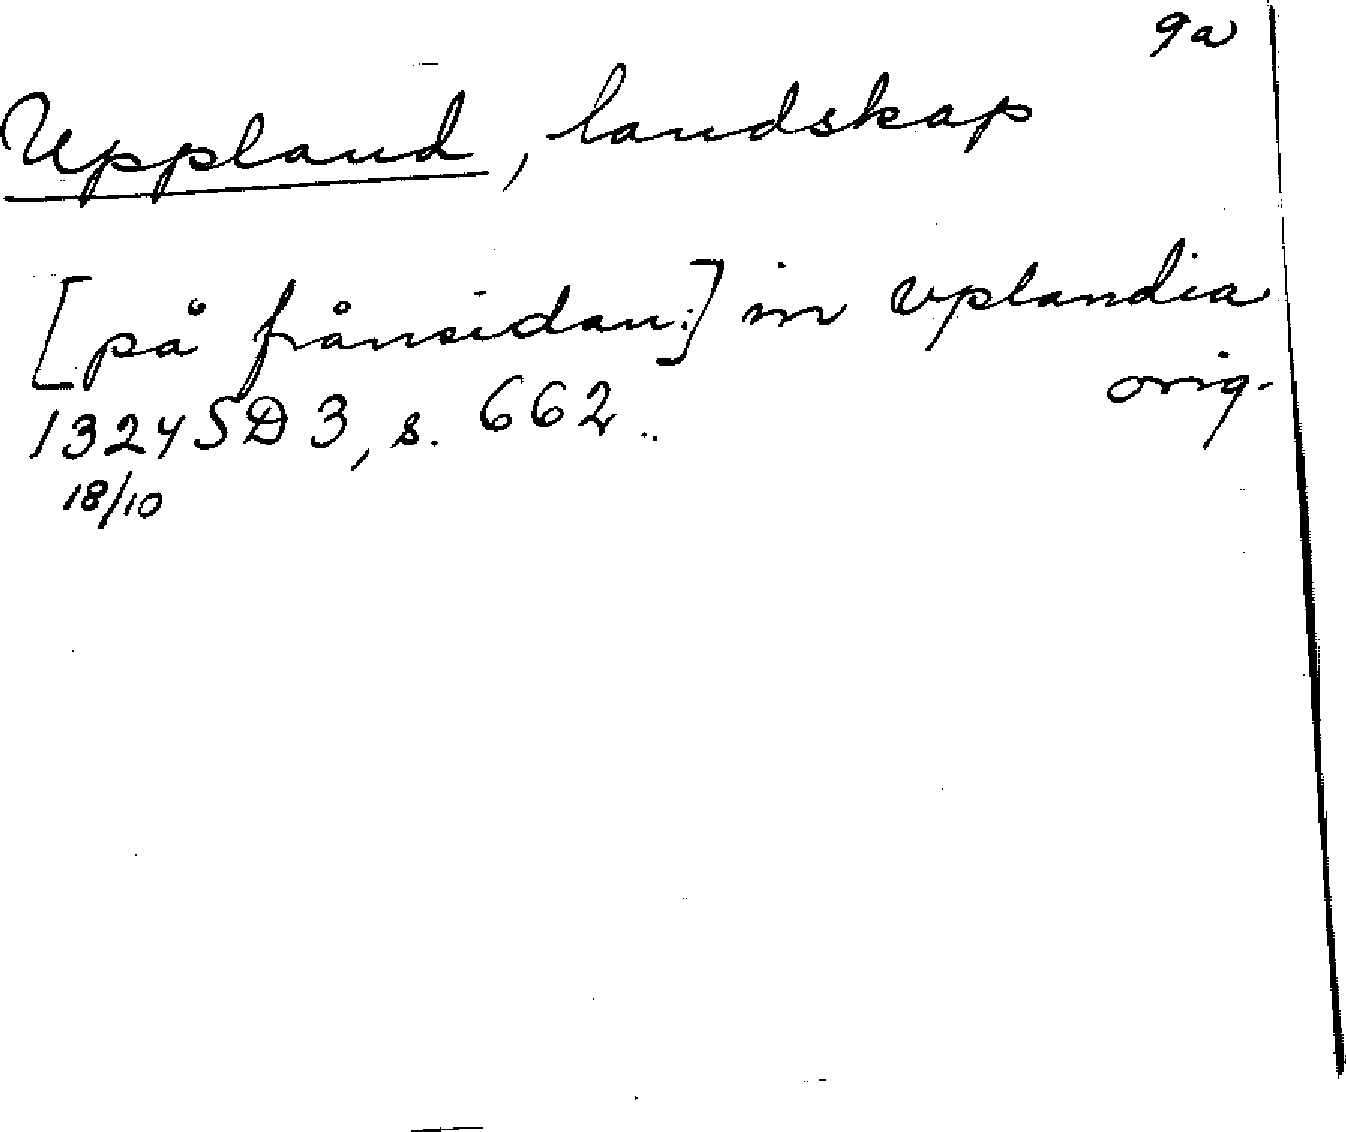 9a
Uppland, landskap
[på frånsidan:] in vplandia
orig.
1324 SD 3, s. 662.
18/10